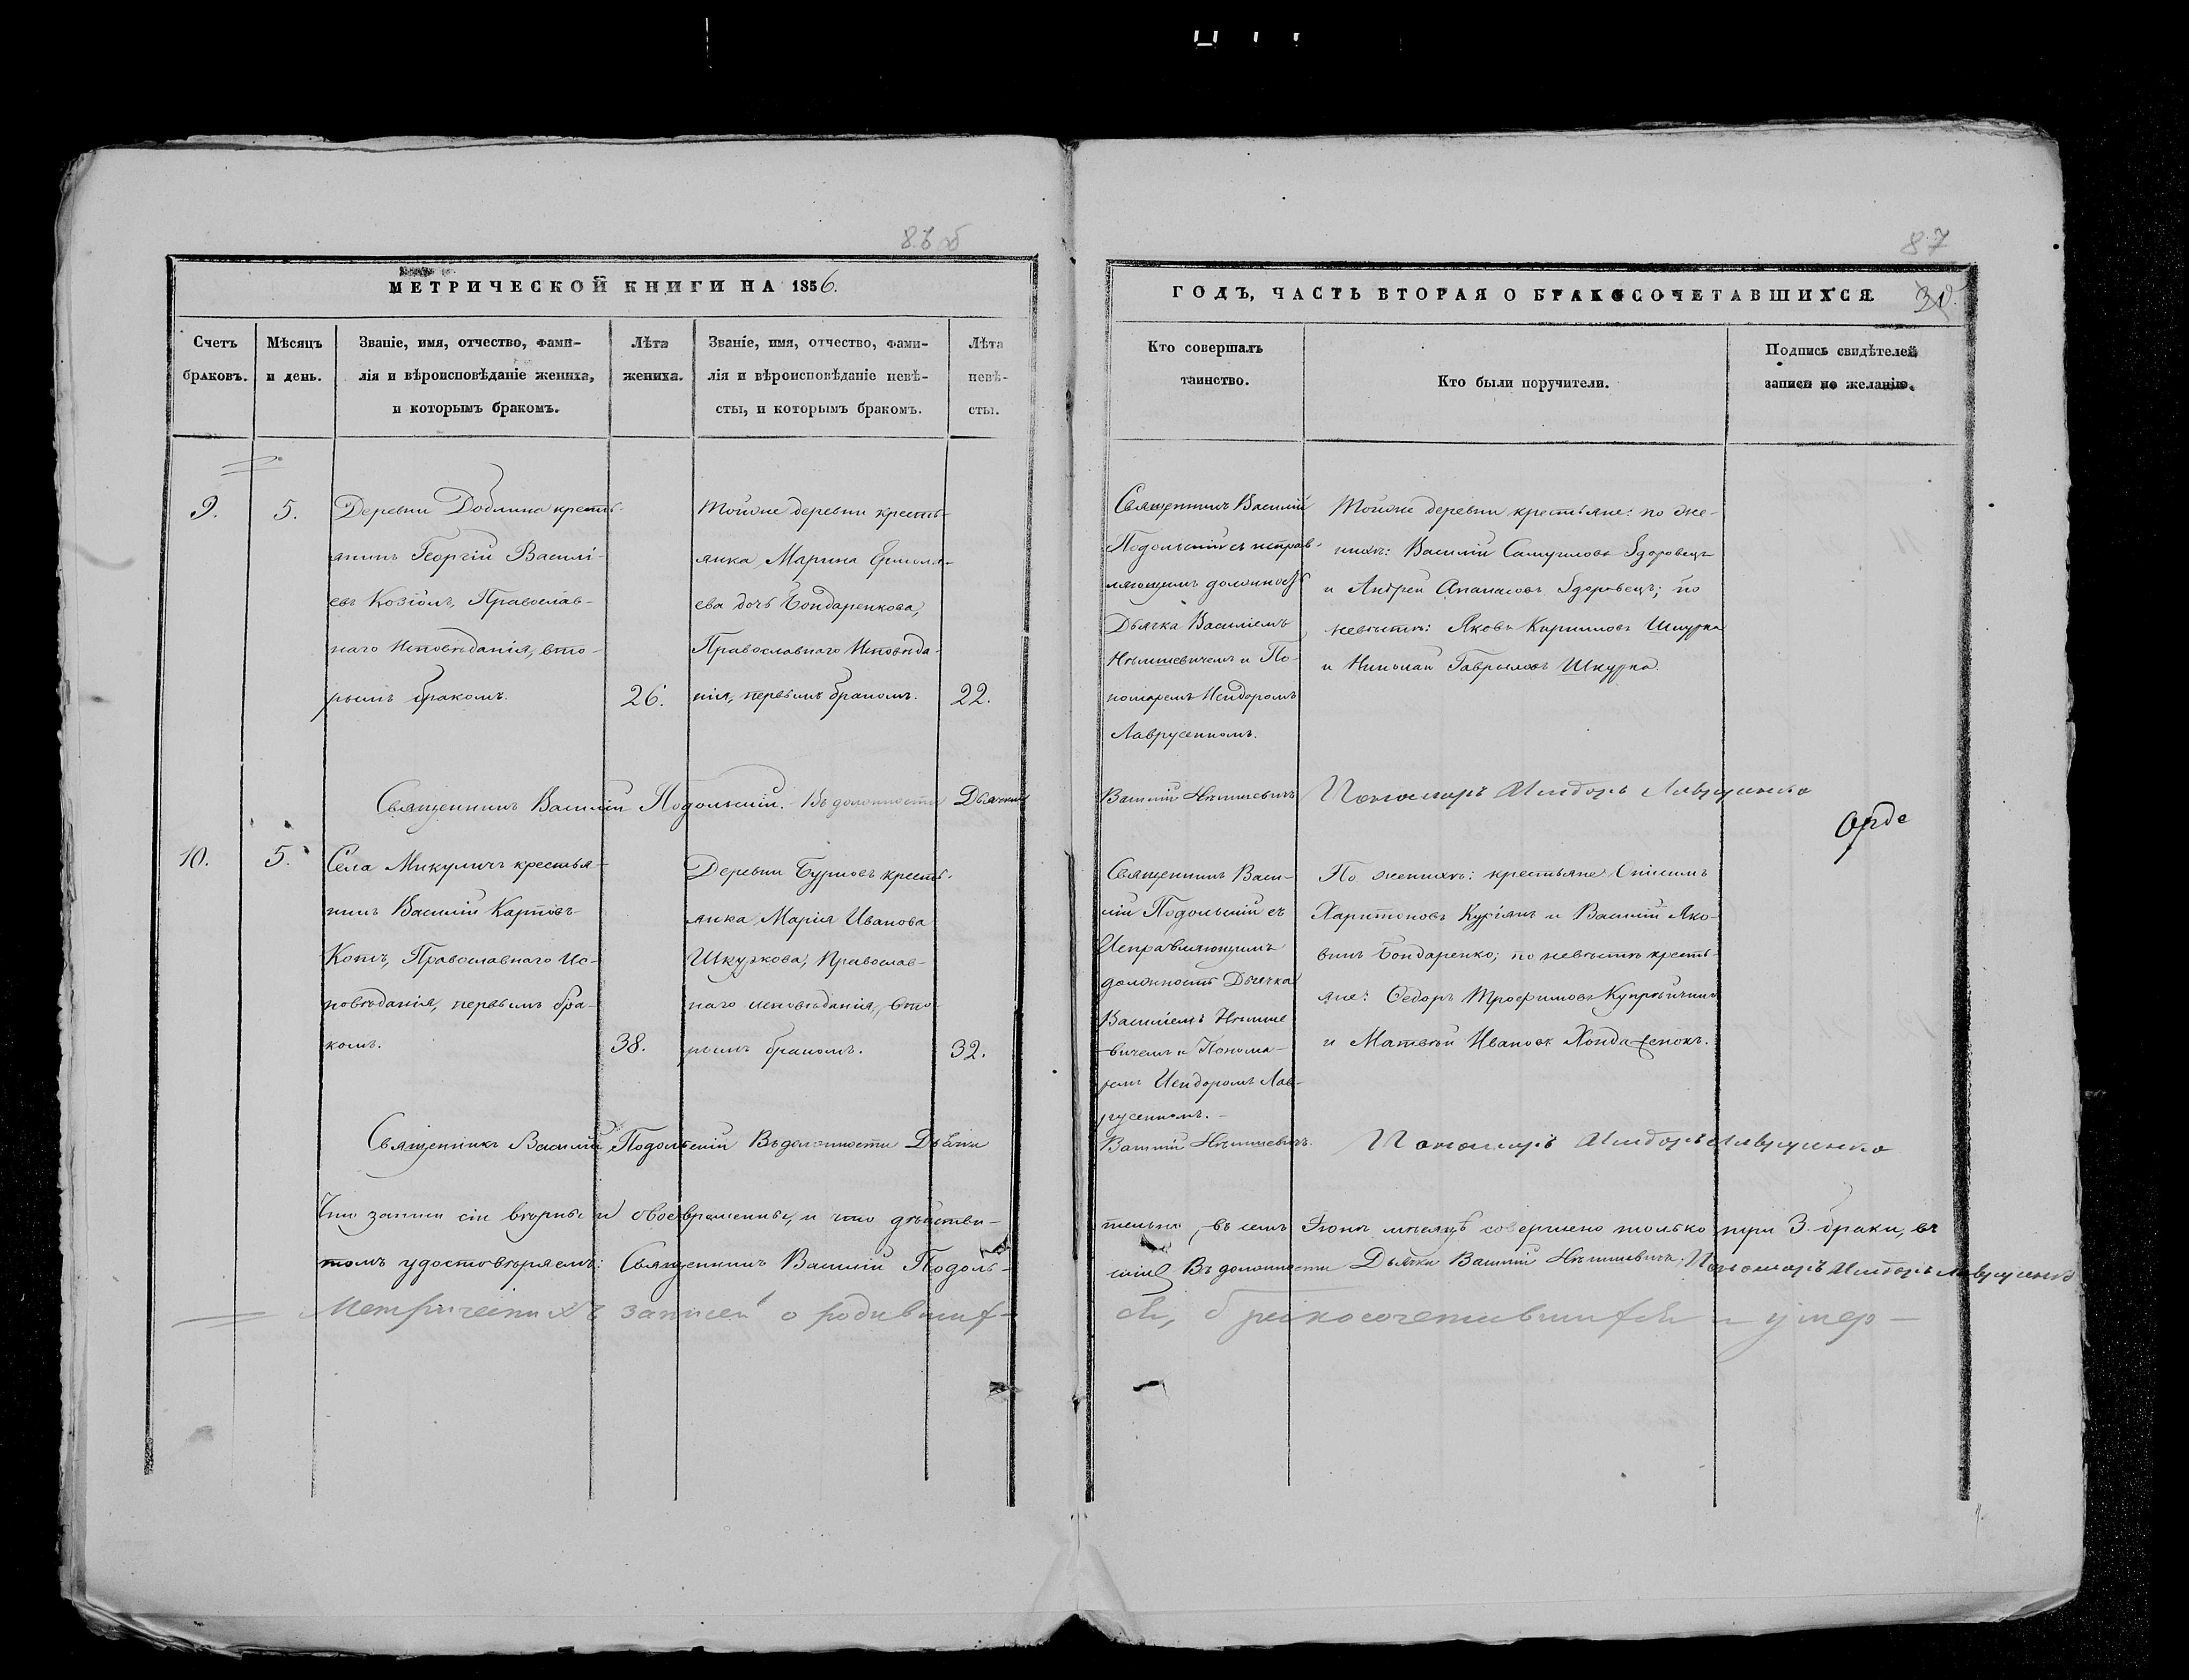 86 об
МЕТРИЧЕСКОЙ КНИГИ НА 1856.
Счетъ браковъ.
Мѣсяцъ и день.
Званіе, имя, отчество, фами-
лія и вѣроисповѣданіе жениха,
и которымъ бракомъ.
Лѣта
жениха.
Званіе, имя, отчество, фами-
лія и вѣроисповѣданіе невѣ-
сты, и которымъ бракомъ.
Лѣта
невѣ-
сты.
9.
5.
Деревни Доблина кресть-
янинъ Георгій Василі-
евъ Козіолъ, Православ-
наго Исповѣданія, вто-
рымъ бракомъ.
26.
Тойже деревни кресть-
янка Марина Ермола-
ева дочь Бондаренкова,
Православнаго Исповѣда-
нія, первымъ бракомъ.
22.
Священникъ Василій Подольскій. Въ должности Дьячка
10.
5.
Села Микуличъ крестья-
нинъ Василій Карповъ
Котъ, Православнаго Ис-
повѣданія, первымъ бра-
комъ.
38.
Деревни Бурковъ кресть-
янка Марія Иванова
Шкуркова, Православ-
наго исповѣданія, вто-
рымъ бракомъ.
32.
Священникъ Василій Подольскій Въ должности Дьячка
Что записи сіи вѣрны и своевременны, и что дѣйстви-
томъ удостовѣряемъ: Священникъ Василій Подоль-
Метрическихъ записей о родивших-
87
ГОДЪ, ЧАСТЬ ВТОРАЯ О БРАКОСОЧЕТАВШИХСЯ.
Кто совершалъ
таинство.
Кто были поручители.
Подпись свидѣтелей
записи по желанію.
Священникъ Василій
Подольскій съ исправ-
ляющимъ должность
Дьячка Василіемъ
Нѣмшевичемъ и По-
номаремъ Исидоромъ
Лаврусенкомъ.
Тойже деревни крестьяне: по же-
нихѣ: Василій Самуиловъ Здоровецъ
и Андрей Апанасовъ Здоровецъ; по
невѣстѣ: Яковъ Кириловъ Шкурка
и Николай Гавриловъ Шкурка.
Василій Нѣмшевичъ Пономарь Исидоръ Лаврусенко
Священникъ Васи-
лій Подольскій съ
Исправляющимъ
должность Дьячка
Василіемъ Нѣмше
-вичемъ и Понома-
ремъ Исидоромъ Лав-
русенкомъ. -
По женихѣ: крестьяне
Харитоновъ и Василій Яко-
вимъ Бондаренко; по невѣстѣ кресть-
яне: Ѳедоръ Трофимовъ
и Матвѣй Ивановъ
Василій Нѣмшевичъ. Пономарь Исидоръ Лаврусенко
тельно, въ семъ Іюнѣ мѣсяцѣ совершено только три 3. браки, въ
скій Въ должности Дьячка Василій Нѣмшевичъ. Пономарь Исидоръ Лаврусенко
ся, бракосочетавшихся и умер-